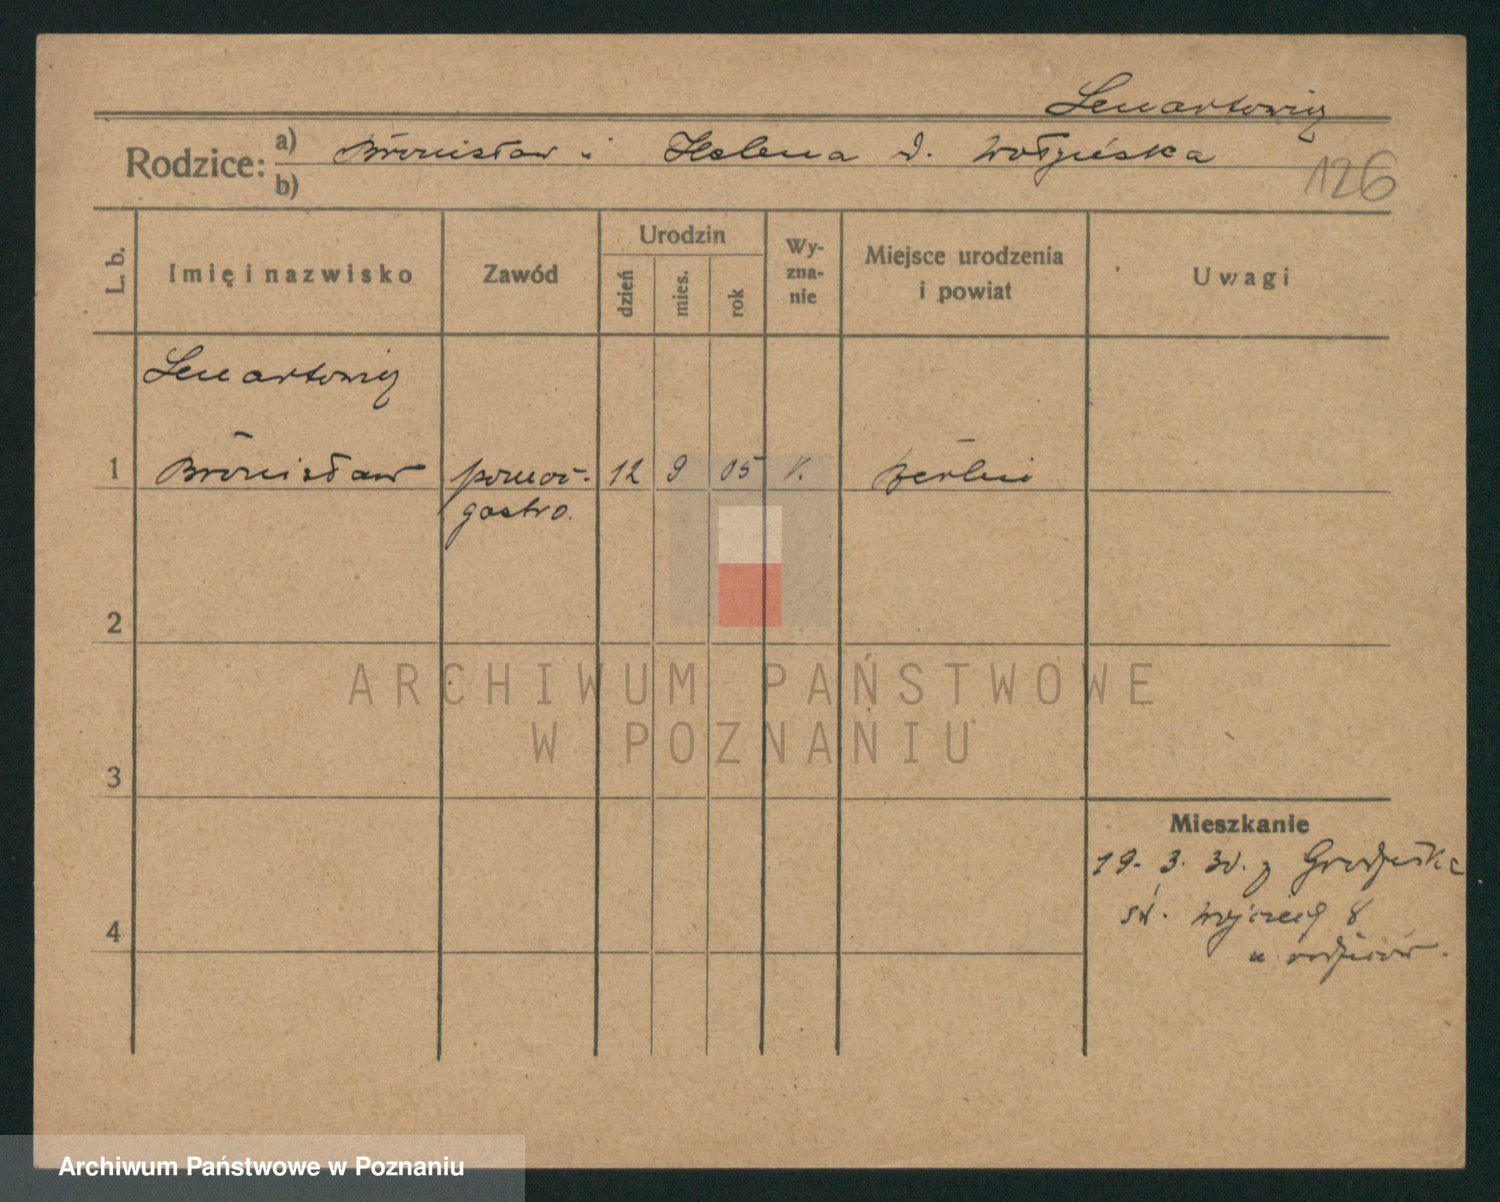 Lenartowicz
Rodzice: a) Bronisław i Helena d.
b)
126
L. b.
Imię i nazwisko
Zawód
Urodzin
dzień
mies.
rok
Wy-
zna-
nie
Miejsce urodzenia
i powiat
Uwagi
Lenartowicz
1 Bronisław pomoc. 12 9 05 k. Berlin
gastro.
2
3
4
ARCHIWUM PAŃSTWOWE
W POZNANIU
Mieszkanie
19. 3. 30. z Grodziska
św. Wojciech 8
u rodziców.
Archiwum Państwowe w Poznaniu